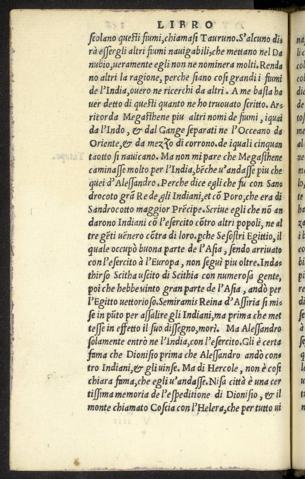 LIBRO
scolano questi fiumi, chiamasi Tauruno. S'alcuno di
rà essergli altri fiumi nauigabili, che mettano nel Da
nubio, ueramente egli non ne nominera molti. Renda
no altri la ragione, perche siano cosi grandi i fiumi
de l'India, ouero ne ricerchi da altri. A me basta ha
uer detto di questi quanto ne ho truouato scritto. Ar
ritorda Megasthene piu altri nomi de fiumi, iquai
da l'Indo, & dal Gange separati ne l'Occeano da
Oriente, & da mezzo di corrono. de iquali cinquan
taotto si nauicano. Ma non mi pare che Megasthene
caminasse molto per l'India, bēche u'andasse piu che
quei d'Alessandro. Perche dice egli che fu con Sand
drocoto grā Re de gli Indiani, et cō Poro, che era di
Sandrocotto maggior Prēcipe. Scriue egli che nō an
darono Indiani cō l'esercito cōtro altri popoli, ne al
tre gēti uēnero cōtra di loro. pche Sesostri Egittio, il
quale occupò buona parte de l'Asia, sendo arriuato
con l'esercito à l'Europa, non seguì piu oltre. Inda-
thirso Scitha uscito di Scithia con numerosa gente,
poi che hebbe uinto gran parte de l'Asia, andò per
l'Egitto uettorioso. Semiramis Reina d'Assiria si mi-
se in pūto per assalire gli Indiani, ma prima che met
tesse in effetto il suo dissegno, morì. Ma Alessandro
solamente entrò ne l'India, con l'esercito. Gli è certa
fama che Dionisio prima che Alessandro andò con-
tro Indiani, & gli uinse. Ma di Hercole, non è cosi
chiara fama, che egli u'andasse. Nisa città è una cer
tissima memoria de l'espeditione di Dionisio, & il
monte chiamato Costia con l'Helera, che per tutto ui